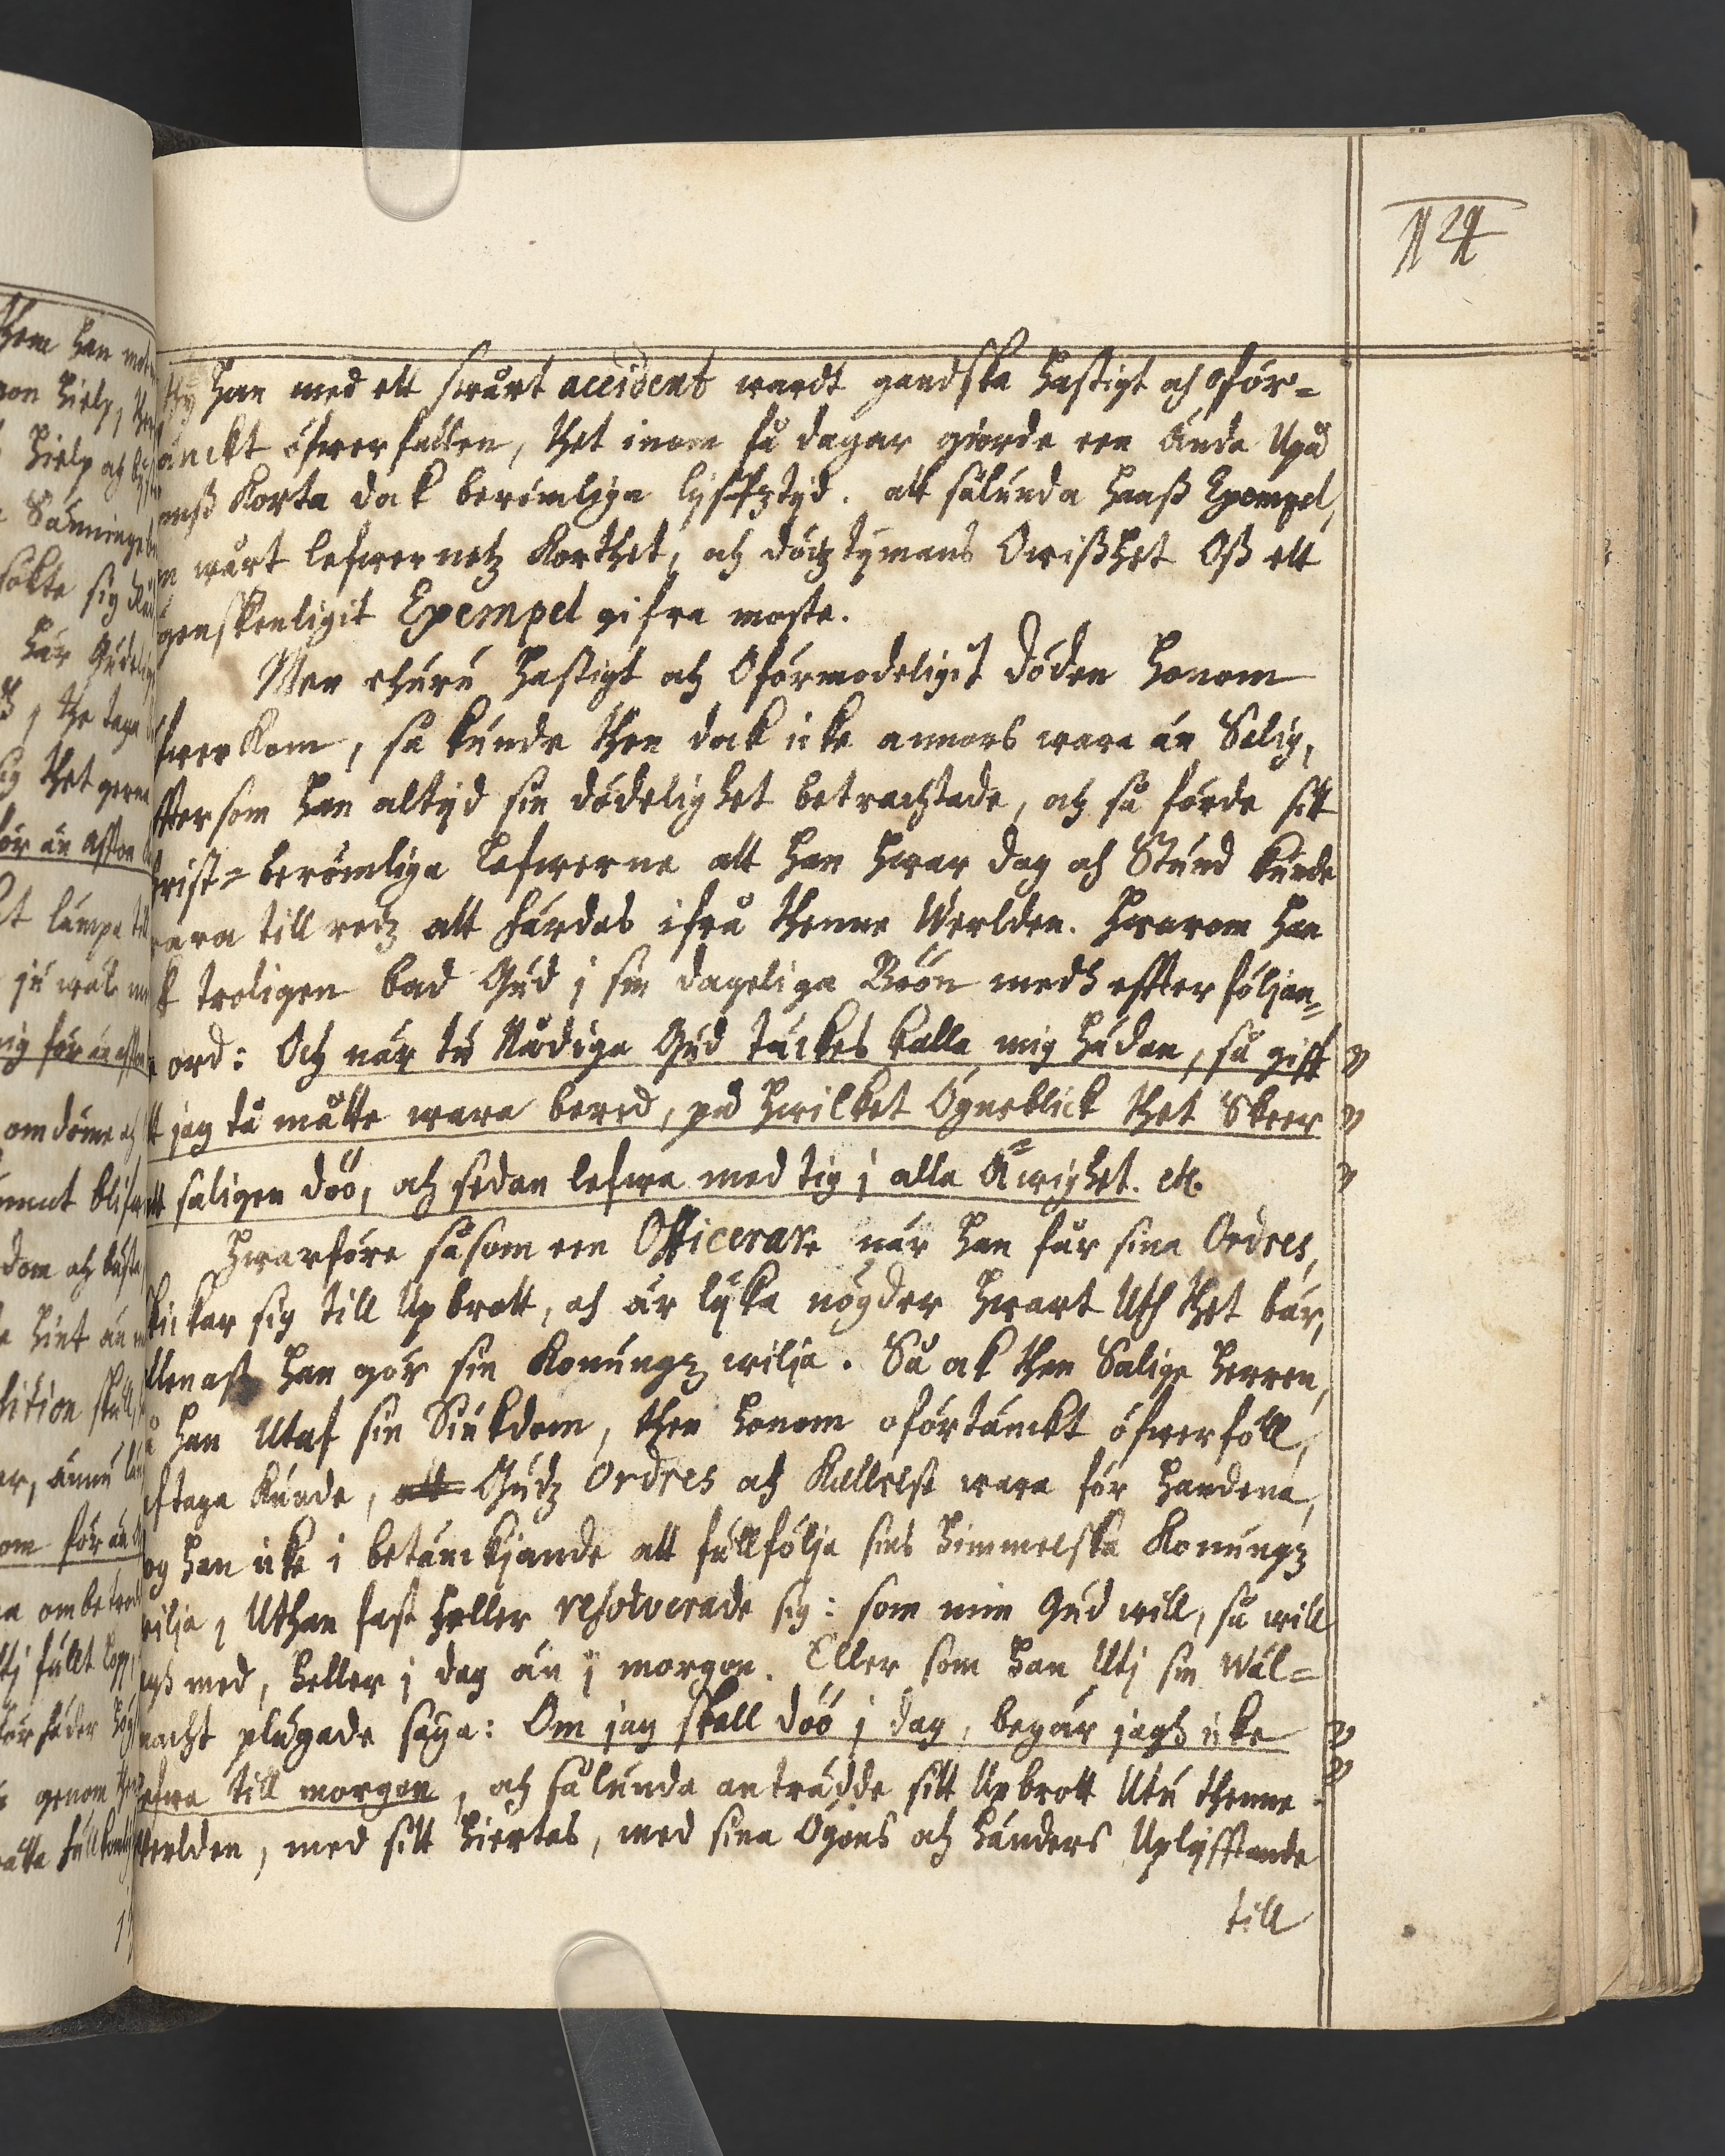 124
ty han med ett swårt accident wardt gandska hastigt och oför=
tänckt öfwerfallen, thet inom få dagar giorde een ända Upå
hanß Korta dock berömliga lyffztyd. att sålunda hanß Exempel,
om wårt lefwernetz Korthet, och dödztymans Owißhet Oß ett
ögenskenligit Exempel gifwa moste.
Men ehuru hastigt och Oförmodeligit döden honom
öfwerkom, så kunde then dock icke annors wara än Salig,
effter som han altyd sin dödelighet betrachtade, och så förde sitt
Christ=berömliga Lefwerne att han hwar dag och Stund kunde
wara till redz att färdas ifrå thenne Werlden. Hwarom han
ock troligen bad Gud j sin dageliga Böön medh effterföljan=
de ord: Och när tu Nådige Gud täckes kalla mig hädan, så giff
att jag tå måtte wara bered, på hwilket Ögneblick thet Skeer
att saligen döö, och sedan lefwa med tig j alla Äwighet. etc.
Hwarföre såsom een Officerare när han får sina Ordres,
skickar sig till Upbrott, och är lyka nögder hwart Uth thet bär,
allenast han gör sin Konungz wilja. Så ock then Salige Herren,
då han Utaf sin Siukdom, then honom oförtänckt öfwerföll,
afftaga Kunde, att Gudz Ordres och Kallelse wara för handena,
tog han icke i betänckjande att fullfölja sins himmelska Konungz
wilja, Uthan fast heller resolverade sig: som min Gud will, så will
jagh med, heller j dag än j morgon. Eller som han Utj sin Wäl=
macht plägade säya: Om jag skall döö j dag, begär jagh icke
lefwa till morgon, och sålunda anträdde sitt Upbrott Utu thenne
Werlden, med sitt hiertas, med sina Ögons och händers Uplyfftande
till